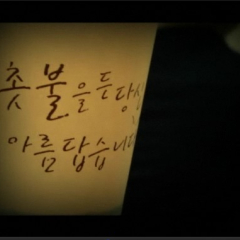 촛불을든 당신
아름답습니다